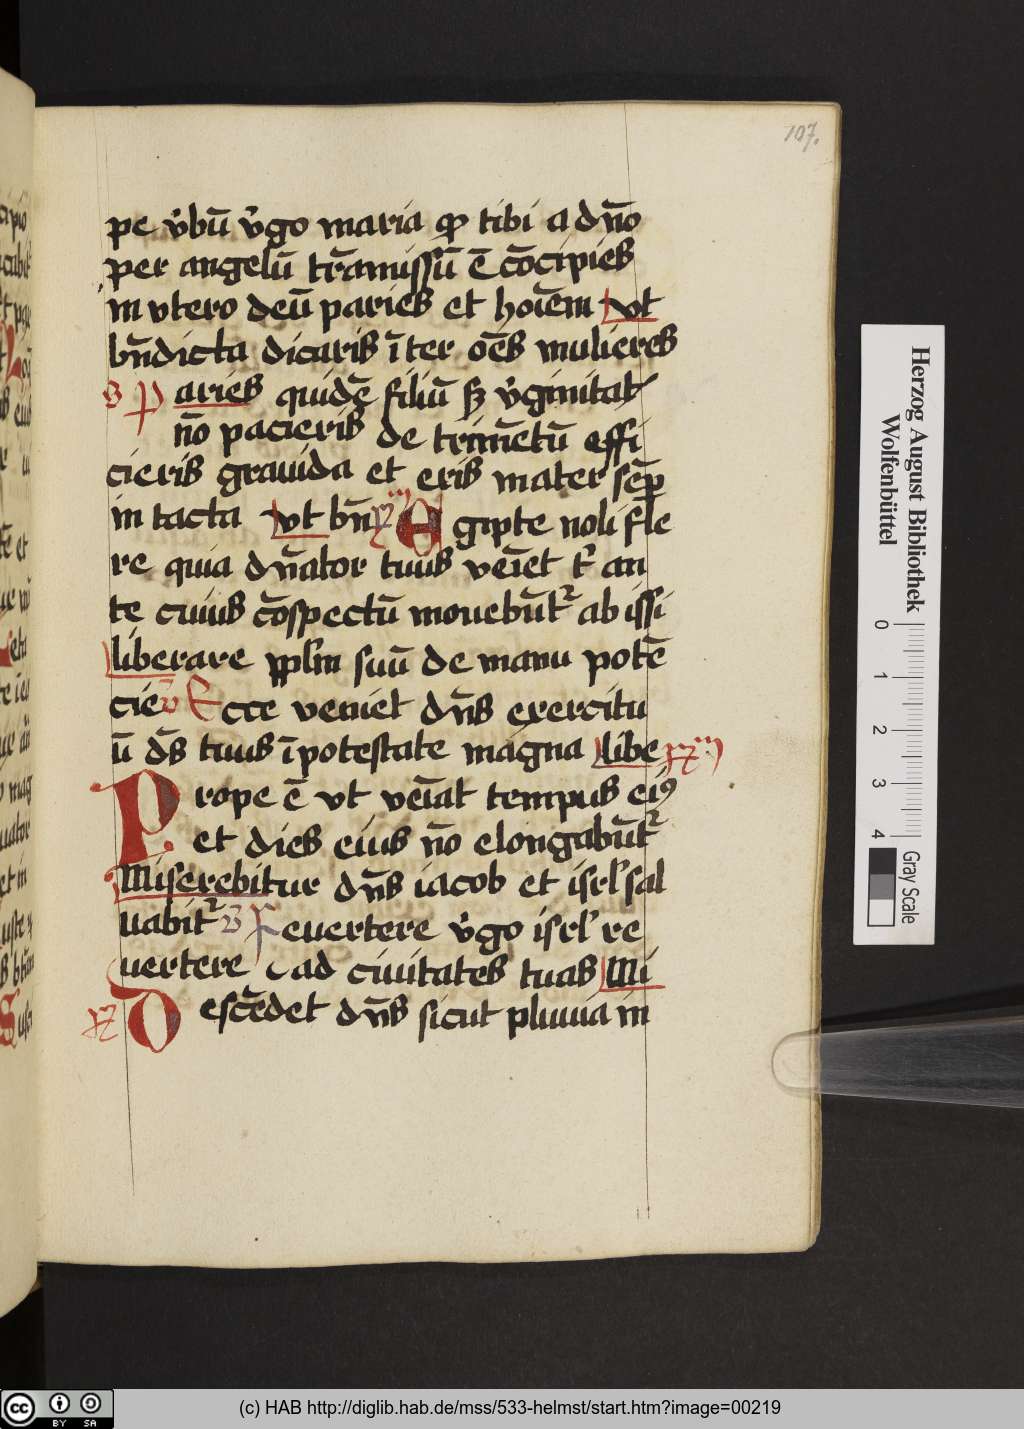 107.
pe v̾bū v̾go maria qͦ tibi a dn̄o
per angelū tr̄amissū ē cōcipies
in vtero deū paries et hoīem vt
bn̄dicta dicaris īter oēs mulieres
v Paries quidē filiū sꝫ v̾ginitat
nō pacieris de trimētū effi
cieris grauida et eris mater semꝑ
in tacta vt bn̄ Egipte noli fle
re quia dn̄ator tuus veīet t̾ an
te cuius cōspectū mouebūt᷑ ab issi
liberare ppl̄m suū de manu potē
cie v Ecce veniet dn̄s exercitu
ū ds̄ tuus ī potestate magna libe
Prope ē vt veīat tempus eiꝰ
et dies eius nō elongabūt᷑
Miserebitur dn̄s iacob et isrl̾ sal
uabit᷑ v Reuertere v̾go isrl̾ re
uertere ad ciuitates tuas Mi
Descēdet dn̄s sicut pluuia in
Herzog August Bibliothek
Wolfenbüttel
0 1 2 3 4
Gray Scale
cc BY SA
(c) HAB http://diglib.hab.de/mss/533-helmst/start.htm?image=00219